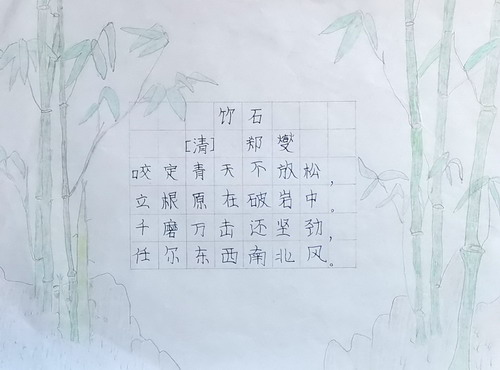 竹石
[清] 郑燮
咬定青天不放松，
立根原在破岩中。
千磨万击还坚劲，
任尔东西南北风。